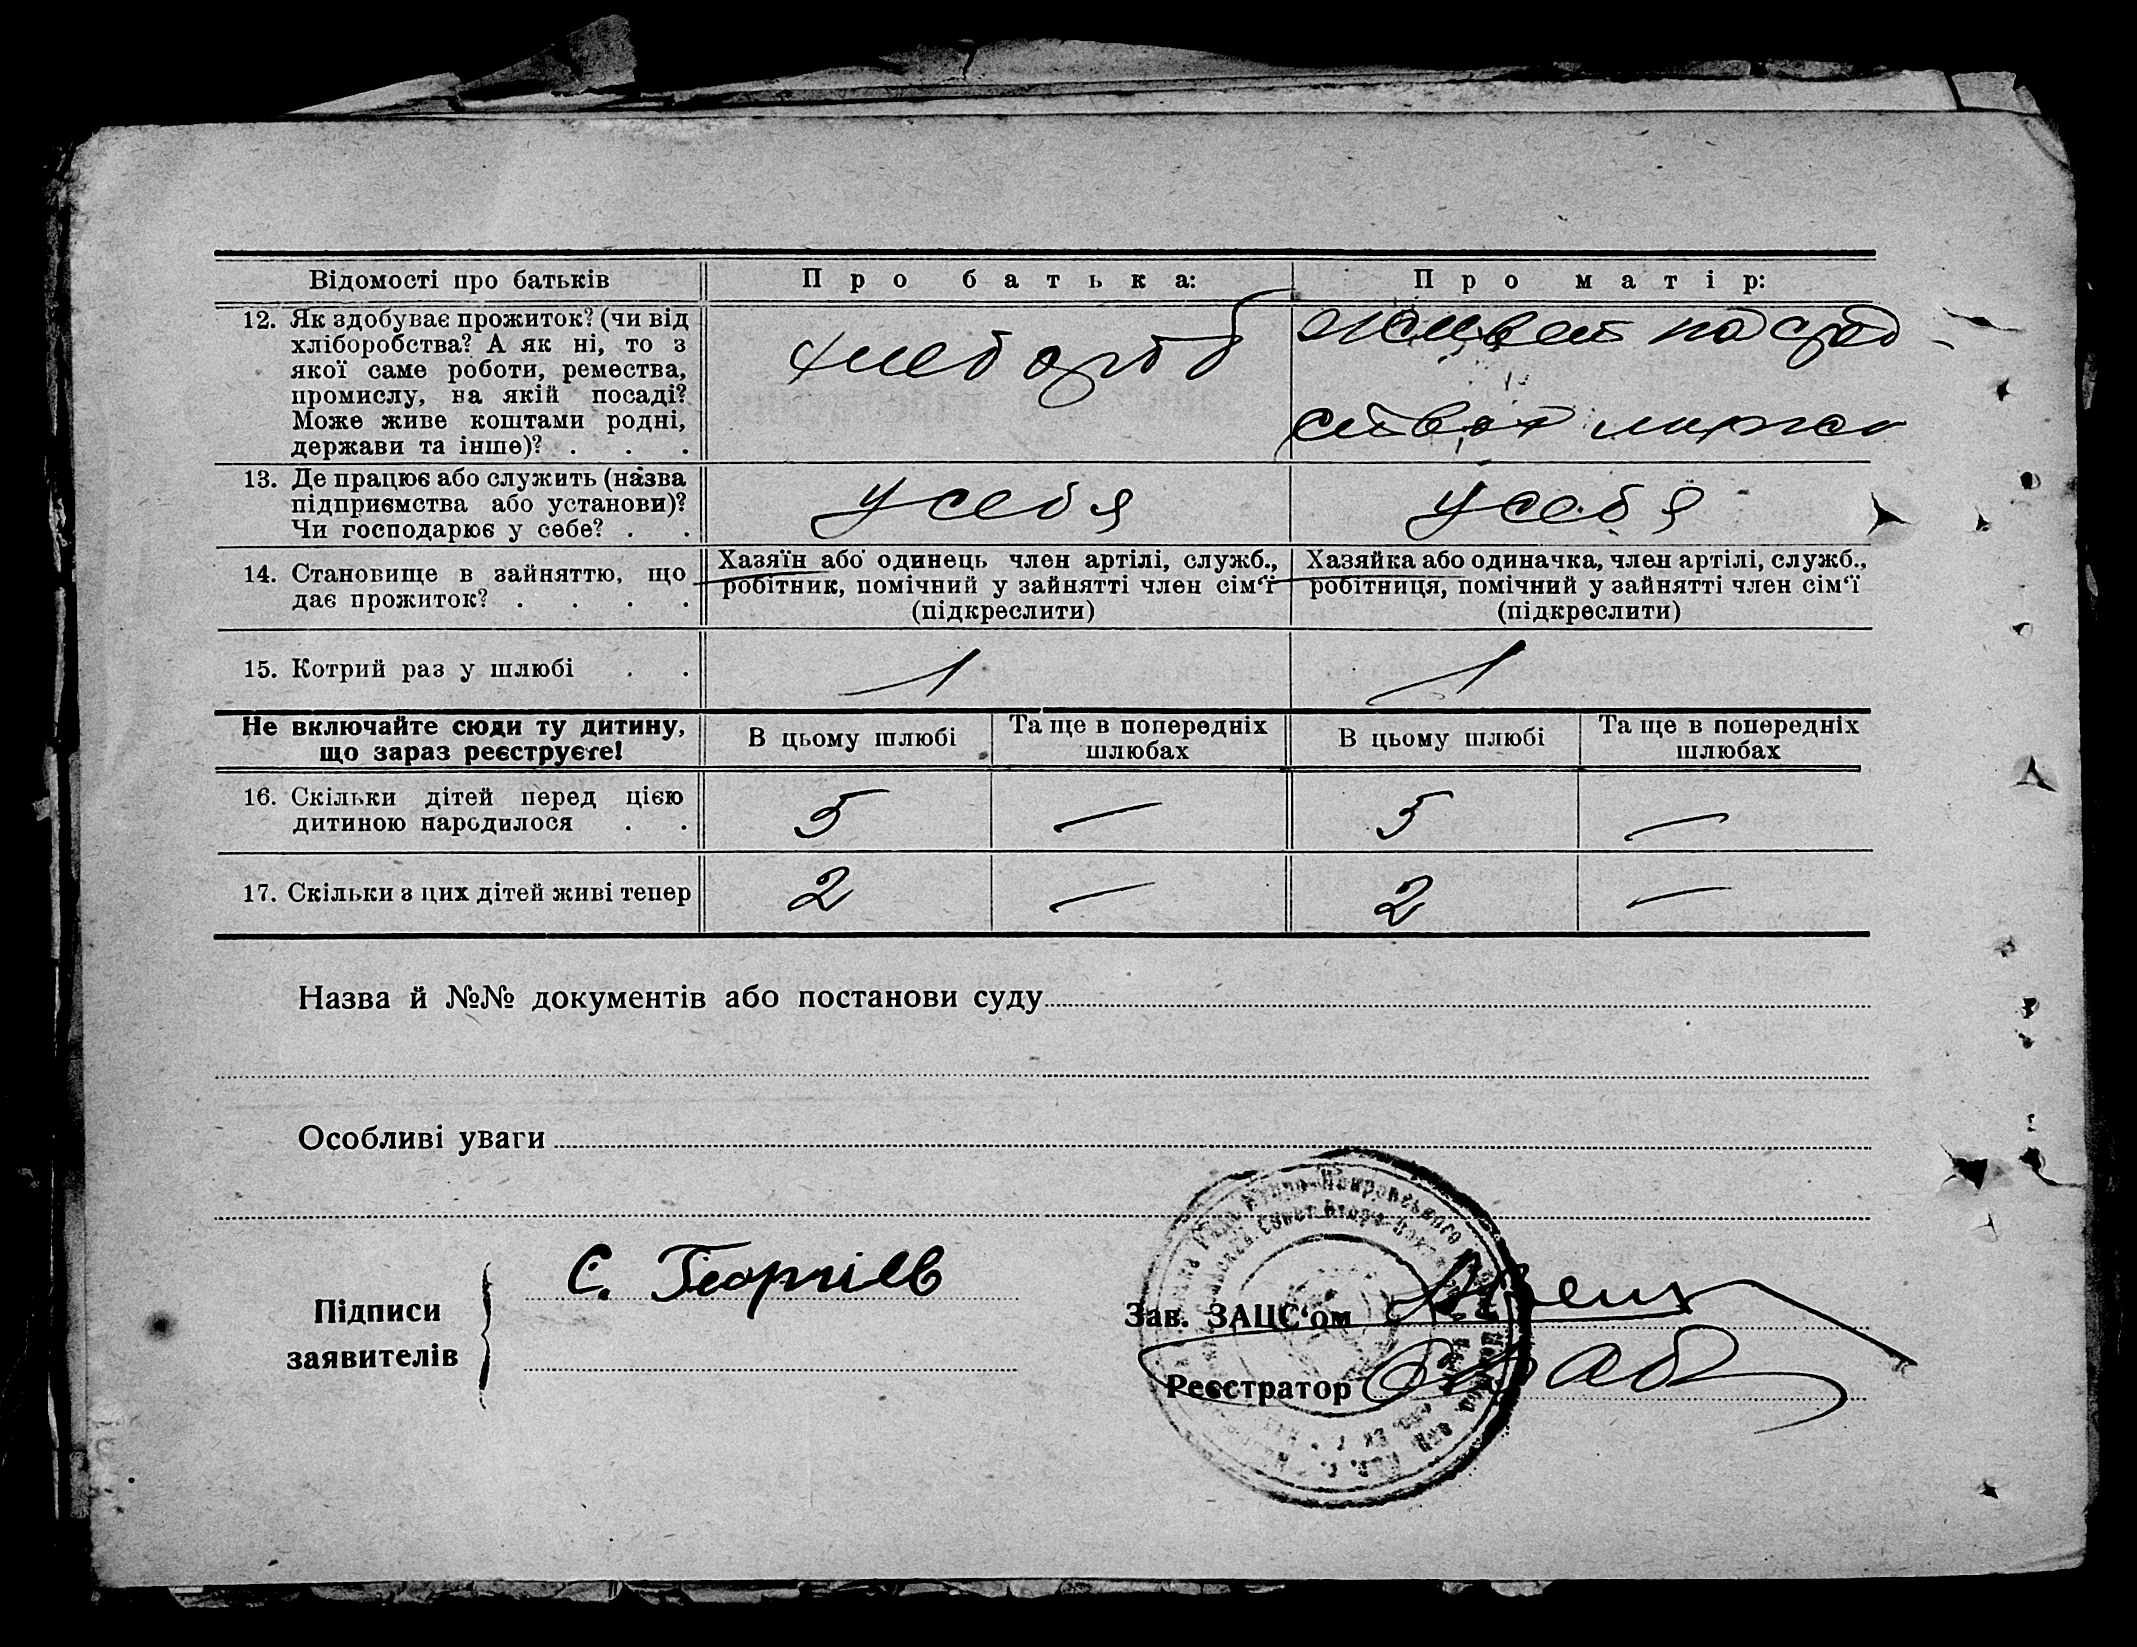 Відомості про батьків
Про батька:
Про матір:
12. Як здобуває прожиток? (чи від
хліборобства? А як ні, то з
якої саме роботи, ремества,
промислу, на якій посаді?
Може живе коштами родні,
держави та інше)? . . .
хлебороб
живет на сред-
ства мужа
13. Де працює або служить (назва
підприємства або установи)?
Чи господарює у себе? . .
у себя
у себя
14. Становище в зайняттю, що
дає прожиток? . . . .
Хазяїн або одинець член артілі, служб.,
робітник, помічний у зайнятті член сім‘ї
(підкреслити)
Хазяйка або одиначка, член артілі, служб.,
робітниця, помічний у зайнятті член сім‘ї
(підкреслити)
15. Котрий раз у шлюбі . .
1
1
Не включайте сюди ту дитину,
що зараз реєструєте!
В цьому шлюбі
Та ще в попередніх
шлюбах
В цьому шлюбі
Та ще в попередніх
шлюбах
16. Скільки дітей перед цією
дитиною народилося . .
5
—
5
—
17. Скільки з цих дітей живі тепер
2
—
2
—
Назва й №№ документів або постанови суду
Особливі уваги
Підписи
заявителів
Є. Георгієв
Зав. ЗАЦС‘ом
Реєстратор